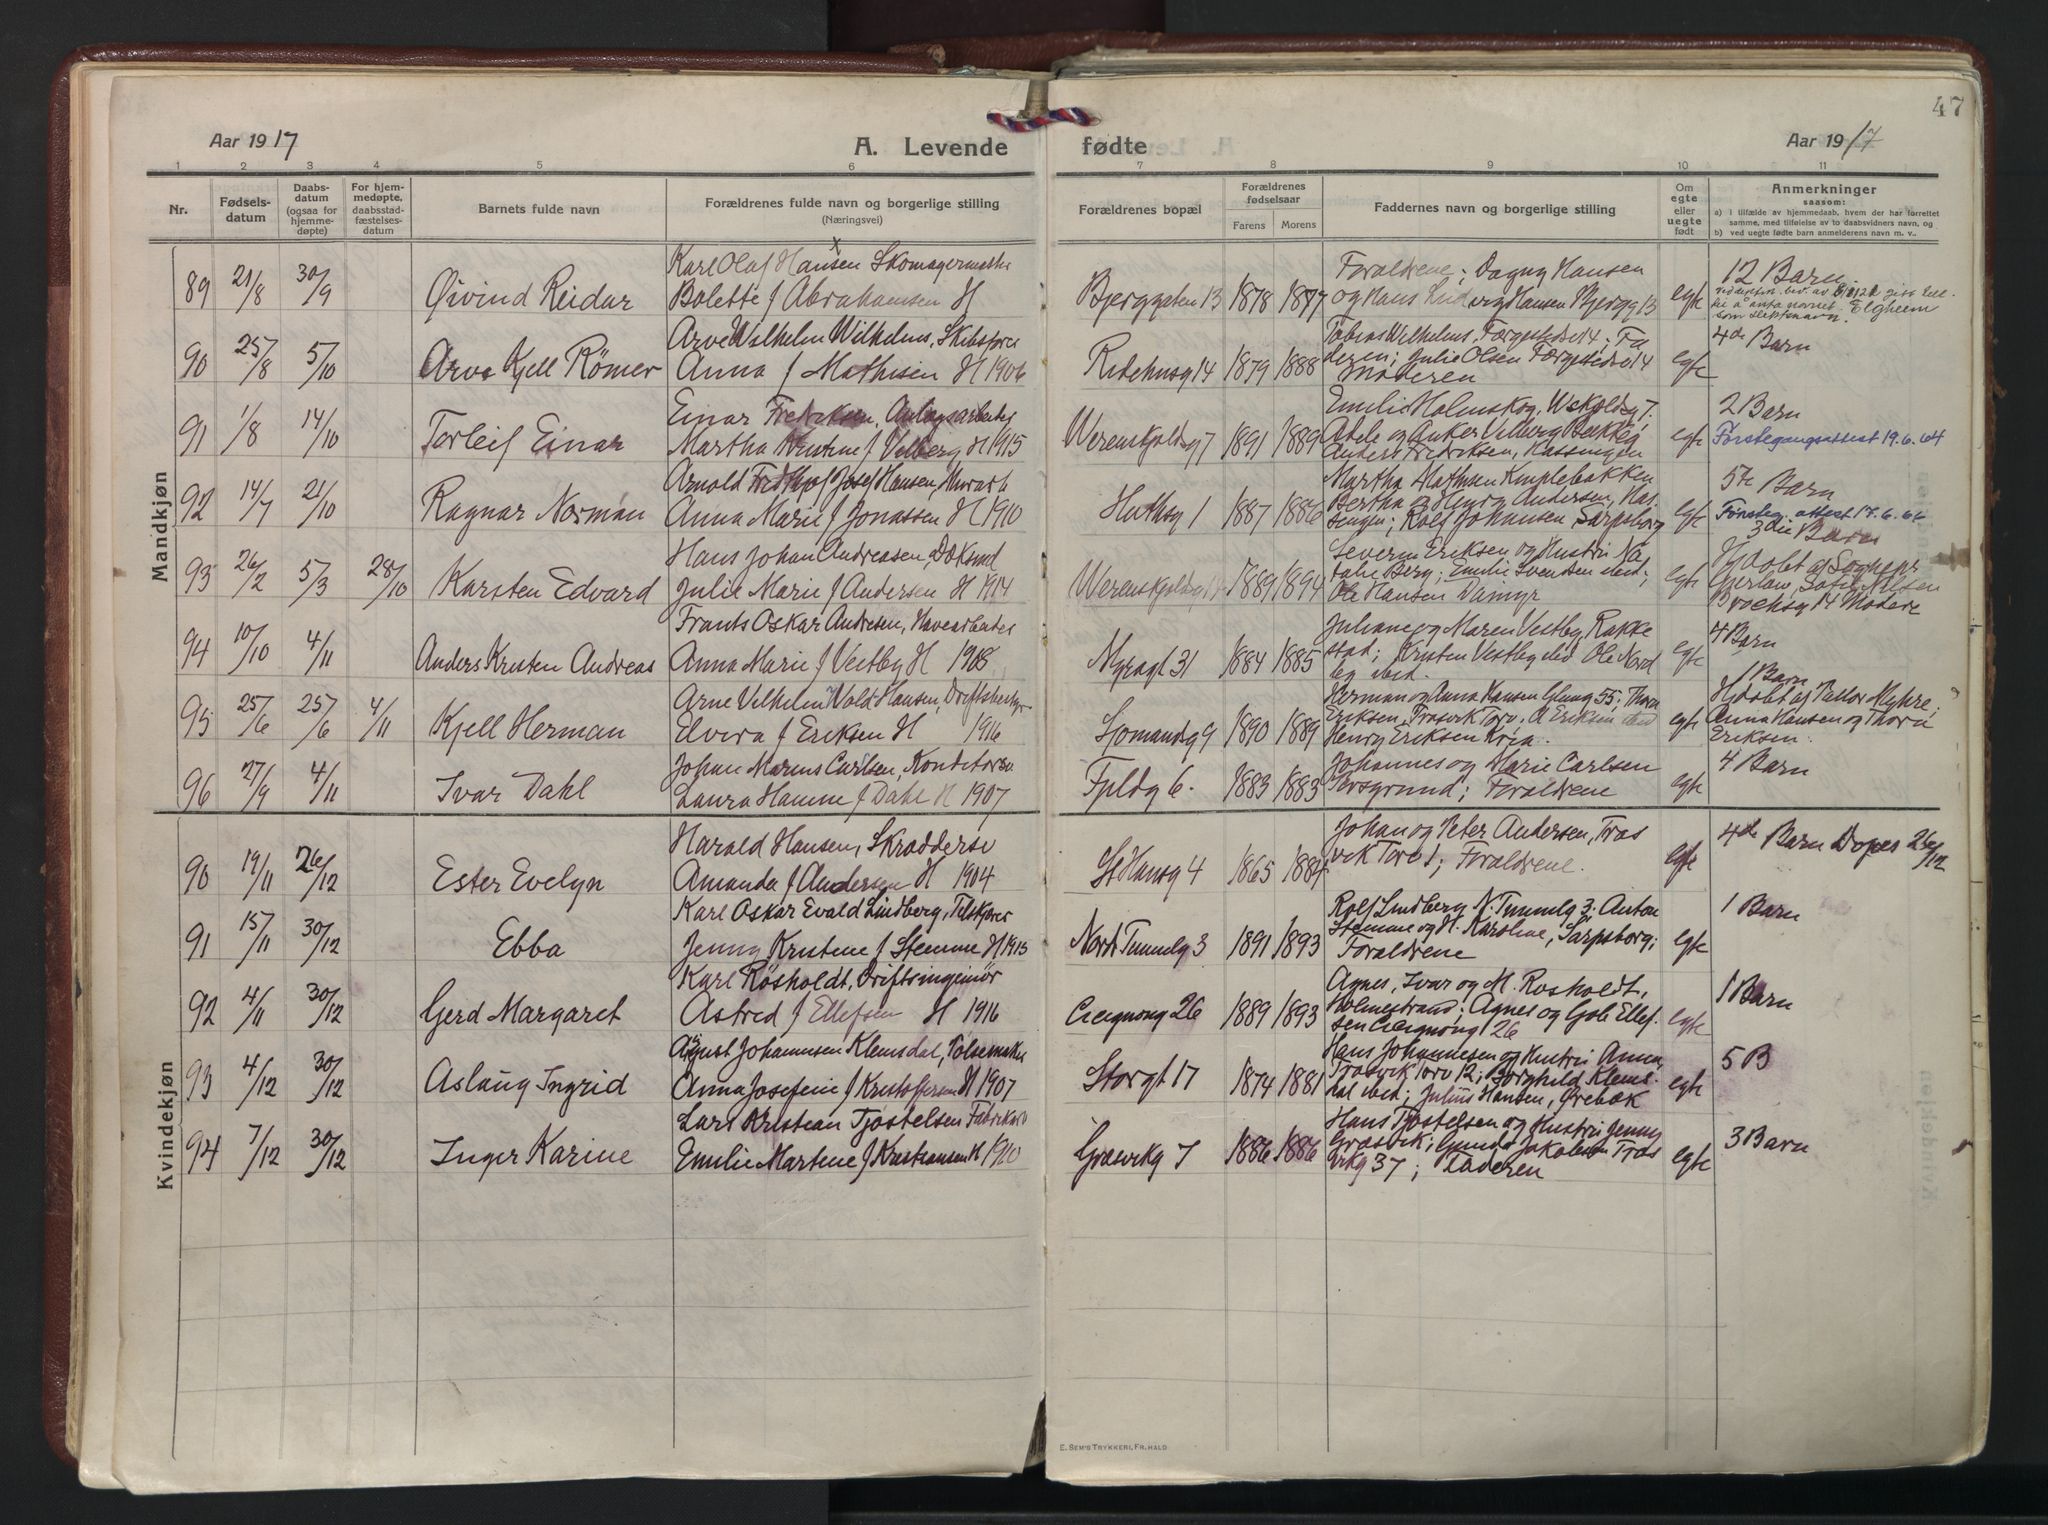 47
Aar 1917
A. Levende fødte
Aar 1917
1 2 3 4 5 6 7 8 9 10 11
Nr.
Fødsels-
datum
Daabs-
datum
(ogsaa for
hjemme-
døpte)
For hjem-
medøpte,
daabsstad-
fæstelses-
datum
Barnets fulde navn
Forældrenes fulde navn og borgerlige stilling
(Næringsvei)
Forældrenes bopæl
Forældrenes
fødselsaar
Farens Morens
Faddernes navn og borgerlige stilling
Om
egte
eller
uegte
født
Anmerkninger
saasom:
a) i tilfælde av hjemmedaab, hvem der har forrettet
samme, med tilføielse av to daabsvidners navn, og
b) ved uegte fødte barn anmelderens navn m. v..
Mandkjøn
89 21/8 30/9 Øivind Reidar
Karl Olaf Hansen Skomagermester
Bolette f Abrahamsen H
Bjerggaten 13 1878 1877
Foraldrene; Dagny Hansen
og Hans Ludvig Hansen Bjergg 13
egte
12 Barn
Elgheim
som slektsnavn.
90 25/8 5/10 Arve Kjell Römer
Arve Vilhelm Wilhelms, Skibsfører
Anna f Mathisen H 1906
Ridehusg 14 1879 1888
Tobias Wilhelms, Færgestedsv 14; Fa
deren; Julie Olsen Færgestedsv 14
Moderen
egte
4de Barn
91 1/8 14/10 Torleif Einar
Einar Fredriksen, Anlagsarbeider
Martha Kristine f Velberg H 1915
Werenskjoldsg 7 1891 1889
Emilie Holmskog, W skjoldsg 7.
Adele og Anker Velberg Bakkeg
Anders Fredriksen, Hassingen
egte
2 Barn
Førstegangsattest 19.6.64
92 14/7 21/10 Ragnar Norman
Arnold Fridthjof Josef Hansen, Murarb
Anna Marie f Jonassen H 1910
Huthsg 1 1887 1886
Martha Mathisen Kniplebakken
Bertha og Henry Andersen, Has
singen; Rolf Johansen, Sarpsborg
egte
5te Barn
Førsteg. attest 17.6.66
93 26/2 5/3 28/10 Karsten Edvard
Hans Johan Andreasen, Doksmd
Julie Marie f Andersen H 1914
Werenskjoldsg 1889 1894
Severin Eriksen og Hustru Na
talie Berg; Emilie Svendsen ibid;
Ole Hansen Dammyr
egte
3die Barn
Hjdøbt af Sognepr
Gjerløw, Sofie Nilsen
Brochsg 14 Modere
94 10/10 4/11 Anders Kristen Andreas
Frants Oskar Andresen, Havearbeider
Anna Marie f Vestby H 1908
Myragt 31 1884 1885
Juliane og Maren Vestby, Rakke
stad; Kristen Vestby ibid Ole Nord
by ibid.
egte
4 Barn
95 25/6 25/6 4/11 Kjell Herman
Arne Vilhelm Wold Hansen, Driftsbestyr
Elvira f Eriksen H 1916
Sjomandsg 9 1890 1889
Herman og Anna Hansen Glung 55; Thora
Eriksen, Trosvik Torv. A Eriksen ibid
Henry Eriksen Kr.ia.
egte
1 Barn
Hjdøbt af Pastor Myhre.
Anna Hansen og Thora
Eriksen.
96 27/9 4/11 Ivar Dahl
Johan Marius Carlsen, Konditorsv
Laura Hanne f Dahl H 1907
Fjeldg 6. 1883 1883
Johannes og Marie Carlsen
Porsgrund; Foraldrene
egte
4 Barn
Kvindekjøn
90 19/11 26/12 Ester Evelyn
Harald Hansen, Skraddersv
Amanda f Andersen H 1904
St Hansg 4 1865 1884
Johan og Peter Andersen, Tros
vik Torv 1; Foraldrene.
egte
4de Barn Døpes 26/12
91 15/11 30/12 Ebba
Karl Oskar Evald Lindberg, Filskjærer
Jenny Kristine f Stemme H 1915
Nordr Tunnelg 3 1891 1893
Rolf Lindberg N. Tunnelg 3; Anton
Stemme og H. Karoline, Sarpsborg;
Foraldrene
egte
1 Barn
92 4/11 30/12 Gerd Margaret
Karl Rösholdt, Driftsingeniör
Astrid f Ellefsen H 1916
Cicignong 26 1889 1893
Agnes, Ivar og M. Rosholdt,
Holmestrand; Agnes og Gole Ellef.
sen Cicignong 26
egte
1 Barn
93 4/12 30/12 Aslaug Ingrid
August Johannesen Klemsdal, Pølsemaker
Anna Josefine f Kristoffersen H 1907
Storgt 17 1874 1881
Hans Johannesen og Hustru Anna,
Trosvik Torv 12; Borghild Klems.
dal ibid; Julius Hansen, Ørebæk
egte
5 B
94 7/12 30/12 Inger Karine
Lars Kristian Tjostelsen Fabrikarb
Emilie Martine f Kristiansen H 1910
Gresvikg 7 1886 1886
Hans Tjostelsen og Hustru Jenny
Gresvik; Gunda Jakobsen Tros
vikg 37; Faderen
egte
3 Barn
E. SEM'S TRYKKERI, FR.HALD